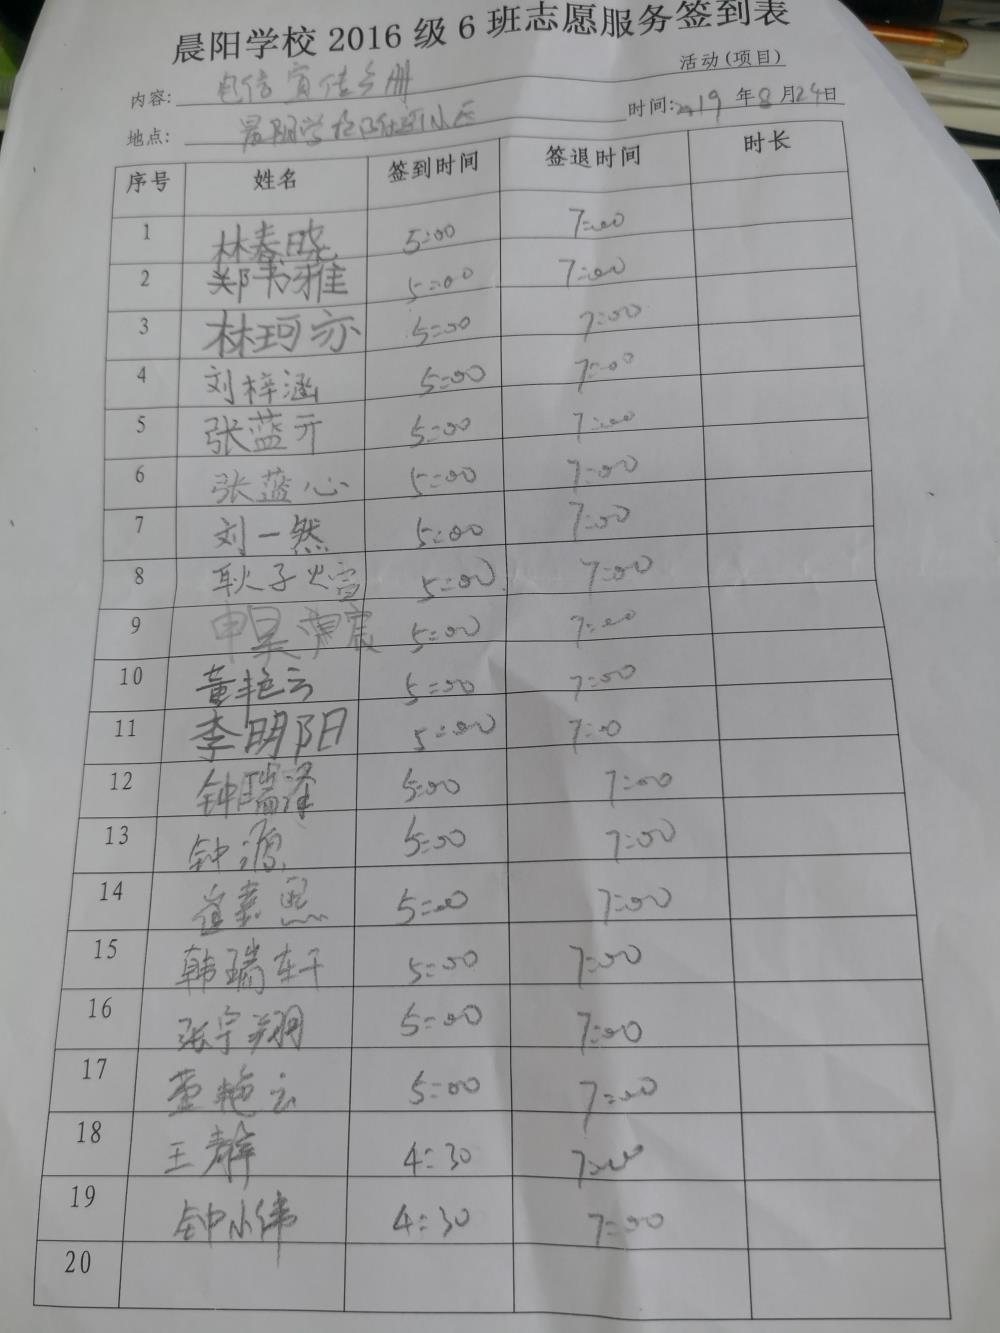 晨阳学校2016级6班志愿服务签到表
内容: 电信宣传手册 活动(项目)
地点: 晨阳学校 小区 时间:2019年8月24日
序号 姓名 签到时间 签退时间 时长
1 林春晓 5:00 7:00
2 郑书雅 5:00 7:00
3 林珂亦 5:00 7:00
4 刘梓涵 5:00 7:00
5 张蓝亓 5:00 7:00
6 张蓝心 5:00 7:00
7 刘一然 5:00 7:00
8 耿子煊 5:00 7:00
9 申昊 5:00 7:00
10 董艳云 5:00 7:00
11 李明阳 5:00 7:0
12 钟瑞泽 5:00 7:00
13 钟源 5:00 7:00
14 5:00 7:00
15 韩瑞轩 5:00 7:00
16 张宇翔 5:00 7:00
17 董艳云 5:00 7:00
18 王静 4:30 7:00
19 钟小伟 4:30 7:00
20